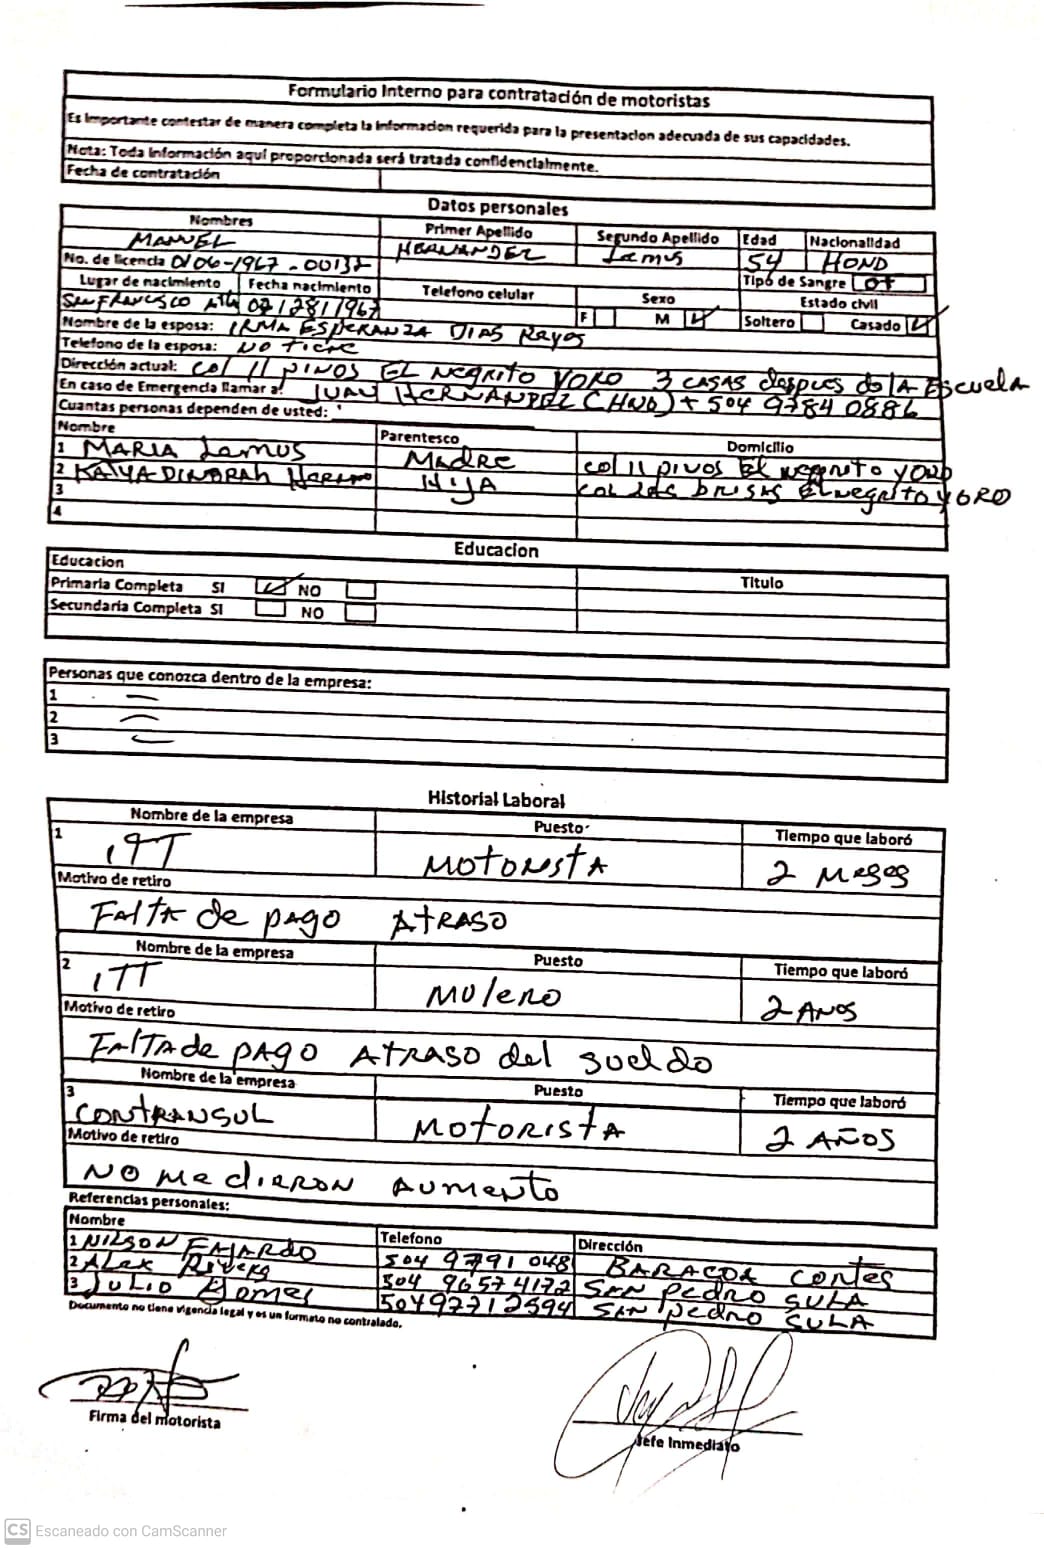 Formulario Interno para contratación de motoristas
Es Importante contestar de manera completa la informacion requerida para la presentacion adecuada de sus capacidades.
Nota: Toda Información aquí proporcionada será tratada confidencialmente.
Fecha de contratación
Datos personales
Nombres Primer Apellido Segundo Apellido Edad Nacionalidad
MANUEL HERNANDEZ Lemus 54 HOND
No. de licencia 0106-1967-00132 Tipo de Sangre O+
Lugar de nacimiento Fecha nacimiento Telefono celular Sexo Estado civil
San Francisco 02/28/1967 F M Soltero Casado
Nombre de la esposa: IRMA ESPERANZA DIAS Reyes
Telefono de la esposa: NO tiene
Dirección actual: col 11 PINOS EL NEGRITO YORO 3 CASAS despues de lA Escuela
En caso de Emergencia llamar a: JUAN HERNANDEZ (HNO) + 504 9784 0886
Cuantas personas dependen de usted:
Nombre Parentesco Domicilio
1 MARIA Lemus MADRE col 11 pinos El negrito YORO
2 DINORAH HIJA COL LAS BRISAS El negrito YORO
3
4
Educacion
Educacion Titulo
Primaria Completa SI NO
Secundaria Completa SI NO
Personas que conozca dentro de la empresa:
1 —
2 —
3 —
Historial Laboral
Nombre de la empresa Puesto Tiempo que laboró
1 ITT MOTORISTA 2 MESES
Motivo de retiro
FALTA de pago ATRASO
Nombre de la empresa Puesto Tiempo que laboró
2 ITT MULERO 2 AÑOS
Motivo de retiro
FALTA de pAgo ATRASO del sueldo
Nombre de la empresa Puesto Tiempo que laboró
3 CONTRANSUL MOTORISTA 2 AÑOS
Motivo de retiro
NO me dieron AUMENTO
Referencias personales:
Nombre Telefono Dirección
1 NILSON FAJARDO 504 9791 048 BARACOA CORTES
2 ALEX Rivera 504 96574172 SAN PEDRO SULA
3 JULIO Gomes 504 97712594 SAN PEDRO SULA
Documento no tiene vigencia legal y es un formato no contralado.
Firma del motorista Jefe Inmediato
CS Escaneado con CamScanner